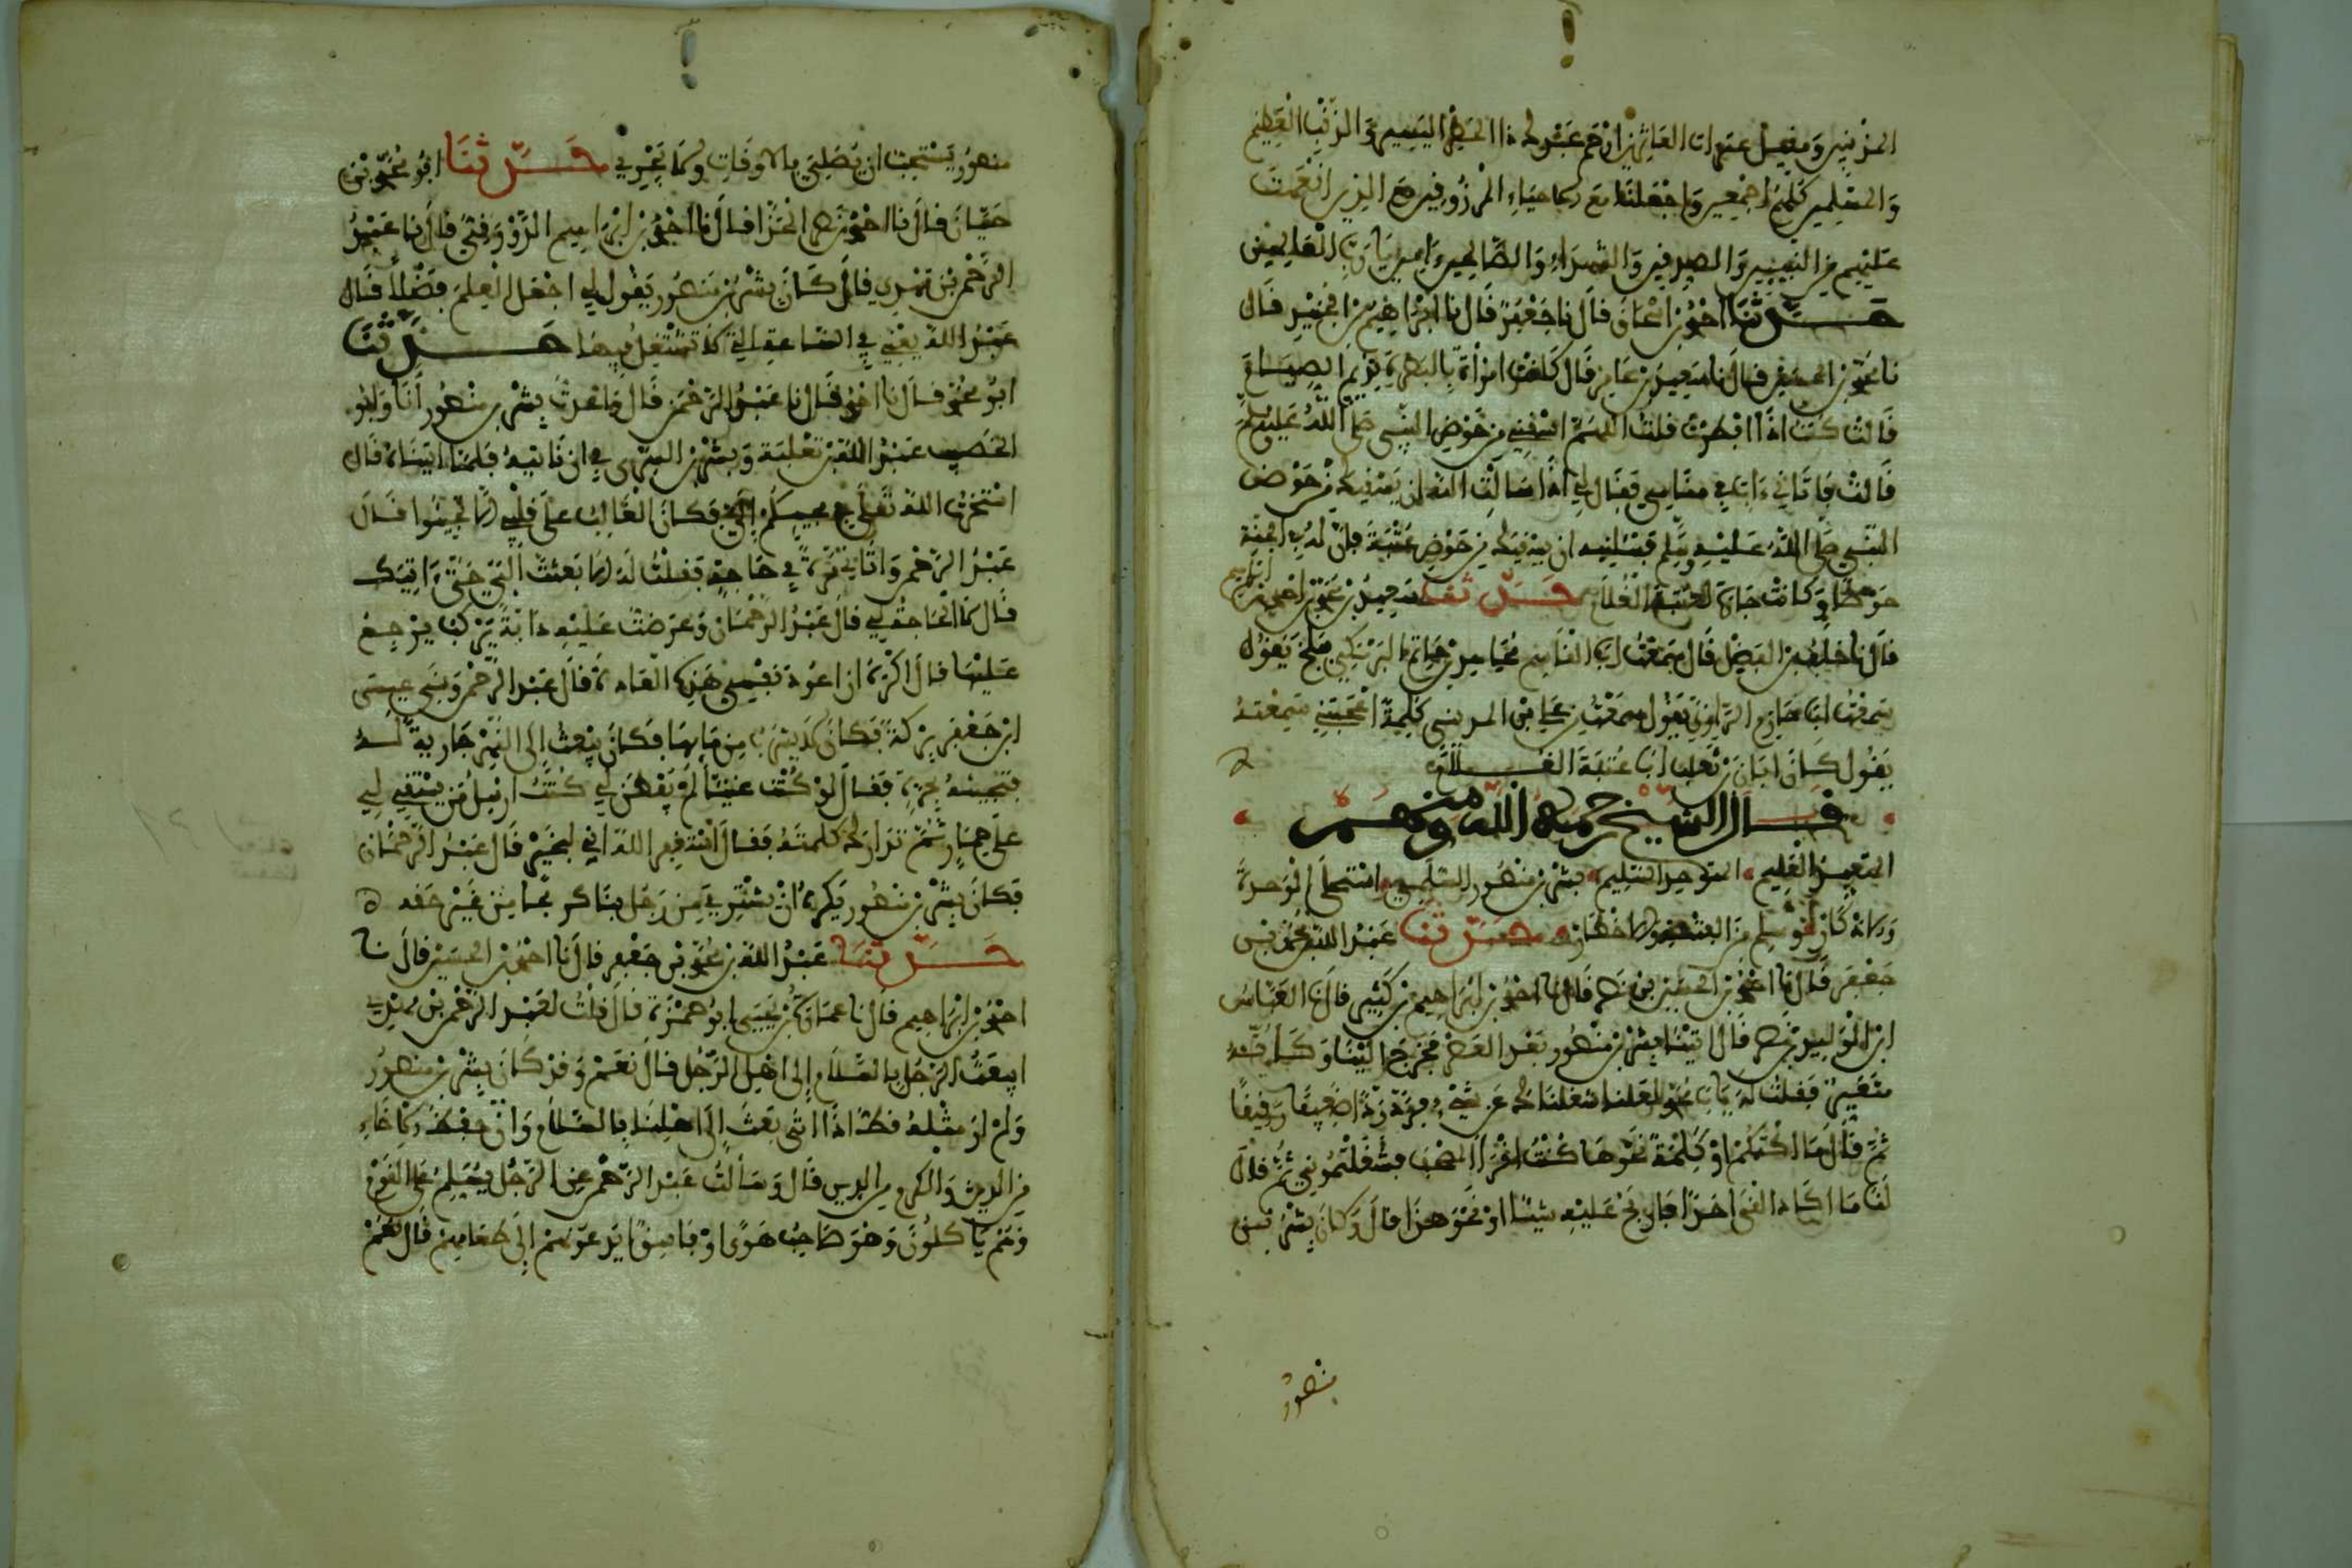 المذنبين ومقيل عثرات العاثرين ارحم عبدك ذا الخطر اليسير والذنب العظيم
والمسلمين كلهم اجمعين واجعلنا مع الاحياء المرزوقين مع الذين انعمت
عليهم من النبيين والصديقين والشهداء والصالحين ءامين يا رب العالمين
حدثنا احمد بن اسحاق قال نا جعفر قال نا ابراهيم بن الجنيد قال
نا محمد بن الحسين قال نا سعيد بن عامر قال كانت امراة بالبصرة تديم الصيام
قالت كنت اذا افطرت قلت اللهم اسقني من حوض النبي صلى الله عليه وسلم
قالت فاتاني ءات في منامي فقال لي اذا سالت الله ان يسقيك من حوض
النبي صلى الله عليه وسلم فسليه ان يسقيك من حوض عتبة فان له في الجنة
حوضا وكانت جارة لعتبة الغلام حدثنا سعيد بن محمد بن ابراهيم
قال نا خلف بن الفضل قال سمعت ابا القاسم بن حاتم يقول
سمعت ابا حازم الرازي يقول سمعت من علي بن المديني كلمة اعجبتني سمعته
يقول كان ابان بن تغلب ابا عتبة الغلام
قال الشيخ رحمه الله ومنهم
المتعبد العليم المتوحد السليم بشر بن منصور السليمي استحلى الوحدة
وراد كان سلم من حدثنا عبد الله بن محمد بن
جعفر قال نا احمد بن الحسين بن نصر قال نا احمد بن ابراهيم بن كثير قال نا العباس
ابن الوليد بن نصر قال اتينا بشر بن منصور بعد العصر فخرج الينا وكانه
متغير فقلت له يا ابا محمد لعلنا شغلناك عن شيء فرد ردا ضعيفا رقيقا
ثم قال ما اكتمكم او كلمة نحوها كنت اقرا في المصحف فشغلتموني ثم قال
لنا ما اكاد القى احدا فاربح عليه شيئا او نحو هذا قال وكان بشر بن
منصور
منصور يستحب ان يصلي بالاوقات ولما يجزي حدثنا ابو محمد بن
حيان قال نا احمد بن نصر الحذا قال نا احمد بن ابراهيم الدورقي قال نا عبد
الرحمن بن مهدي قال كان بشر بن منصور يقول لي اجعل العلم فضلا قال
عبد الله يعني في الساعة التي لا تشتغل فيها حدثنا
ابو محمد قال نا احمد قال نا عبد الرحمن قال واعدت بشر بن منصور انا وابو
الخصيب عبد الله بن ثعلبة وبشر بن السري في ان ناتيه فلما اتيناه قال
استخرت الله تعالى في مجيئكم الي فكان الغالب على قلبي الا تجيئوا قال
عبد الرحمن واتاني مرة في حاجة فقلت له لما بعثت الي حتى ءاتيك
قال لا الحاجة لي قال عبد الرحمان وعرضت عليه دابة يركب يرجع
عليها قال اكره ان اعود نفسي هذه العادة قال عبد الرحمن وبنى عيسى
ابن جعفر بركة فكان لا يشرب من مايها فكان يبعث الى النهر جارية له
فتجيئه بجرة فقال لو كنت غنيا لم يفطن لي كنت ارسل من يستقي لي
على حمار ثم ندم اذ كلمته فقال استغفر الله اني لبخير قال عبد الرحمان
فكان بشر بن منصور يكره ان يشتري من رجل من غير حقه
حدثنا عبد الله بن محمد بن جعفر قال نا احمد بن الحسين قال نا
احمد بن ابراهيم قال نا غسان قال قلت لعبد الرحمن بن مهدي
ايبعث الرجل بالسلام الى اهل الرجل قال نعم وقد كان بشر بن منصور
ولم ار مثله قط اذا اتى بعث الى اهلنا بالسلام وان حفظ الاخاء
من الدين والكرم من الدين قال وسالت عبد الرحمن عن الرجل يسلم على القوم
وهم ياكلون وهو صاحب هوى او فاسق ايدعونهم الى طعامهم قال نعم